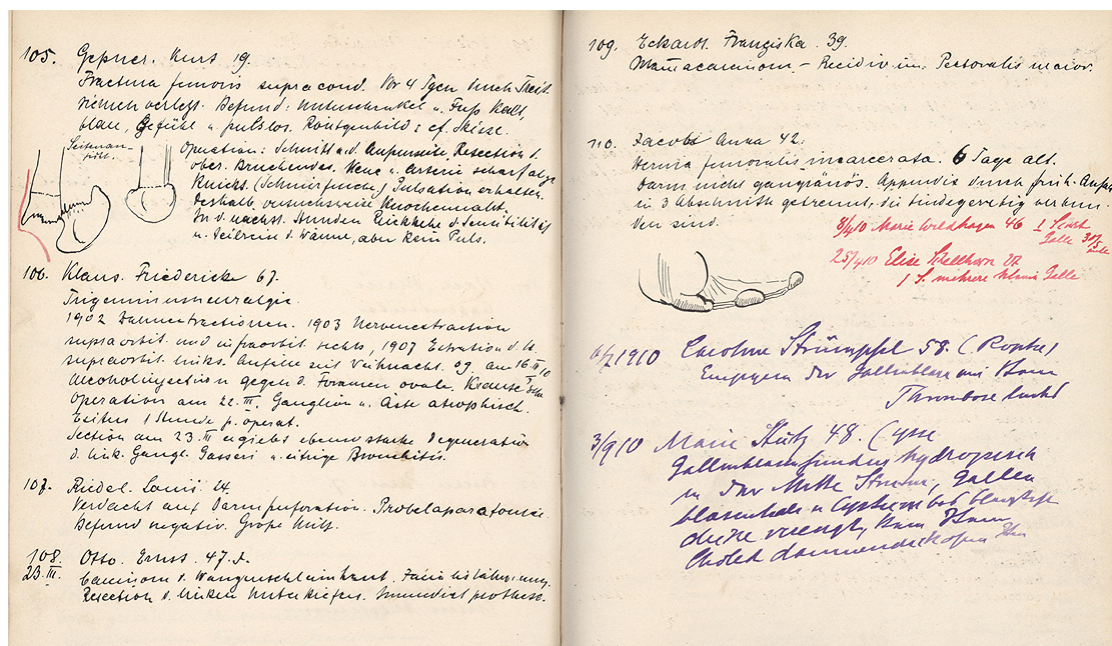 105. Gepner. Kurt 19.
Fractura femoris supracond. Vor 4 Tgen durch Treib-
riemen verletzt. Befund: Unterschenkel u. Fuß kalt,
blau, Gefühl u. pulslos. Röntgenbild: cf. Skizze.
Seitenan-
sicht.
Operation: Schnitt a. d. Außenseite, Resection d.
ober. Bruchendes. Vene u. Arterie scharf abge
knickt. (Schnürfurche) Pulsation erhalten.
Deshalb Knochennaht.
In d. nächst. Stunden Rückkehr d. Sensibilität
u. teilweis d. Wärme, aber kein Puls.
106. Klaus. Friedericke 67.
Trigeminusneuralgie.
1902 Zahnextractionen. 1903 Nervenextraction
supraorbit. und infraorbit. rechts, 1907 Extraction d. N.
supraorbit. links. Anfälle seit Weihnacht. 09. am 16. III. 10
Alcoholinjection gegen d. Foramen ovale. Krause'sche
Operation am 22. III. Ganglion u. Äste atrophisch.
Exitus 1 Stunde p. operat.
Section am 23. III ergiebt ebenso starke Degeneration
d. link. Gangl. Gasseri u. eitrige Bronchitis.
107. Riedel. Louis 14.
Verdacht auf Darmperforation. Probelaparatomie.
Befund negativ. Große Milz.
108. Otto. Ernst. 47. J.
23. III. Carcinom d. Wangenschleimhaut.
Resection d. linken Unterkiefers. Immediatprothese.
109. Eckardt. Franziska. 39.
Mammacarcinom. – Recidiv im. Pectoralis maior.
110. Jacobi Anna 42.
Hernia femoralis incarcerata. 6 Tage alt.
Darm nicht gangränös. Appendix durch früh. Anfall
in 3 Abschnitte getrennt, die bindegewebig verbun-
den sind.
8/4 10 Marie Wildhagen 46 1 Stein
Galle
25/4 10 Elise Schellhorn
1 S. mehrere kleine Galle
1910 Caroline Strümpfel 58.
Empyem der Gallenblase mit Stein
Thrombose
3/9 10 Marie Stütz 48. Cyste
Gallenblasenfundus hydropisch
in der Mitte Gallen
blasenhals u. Cysticus bis
verengt, kein Stein